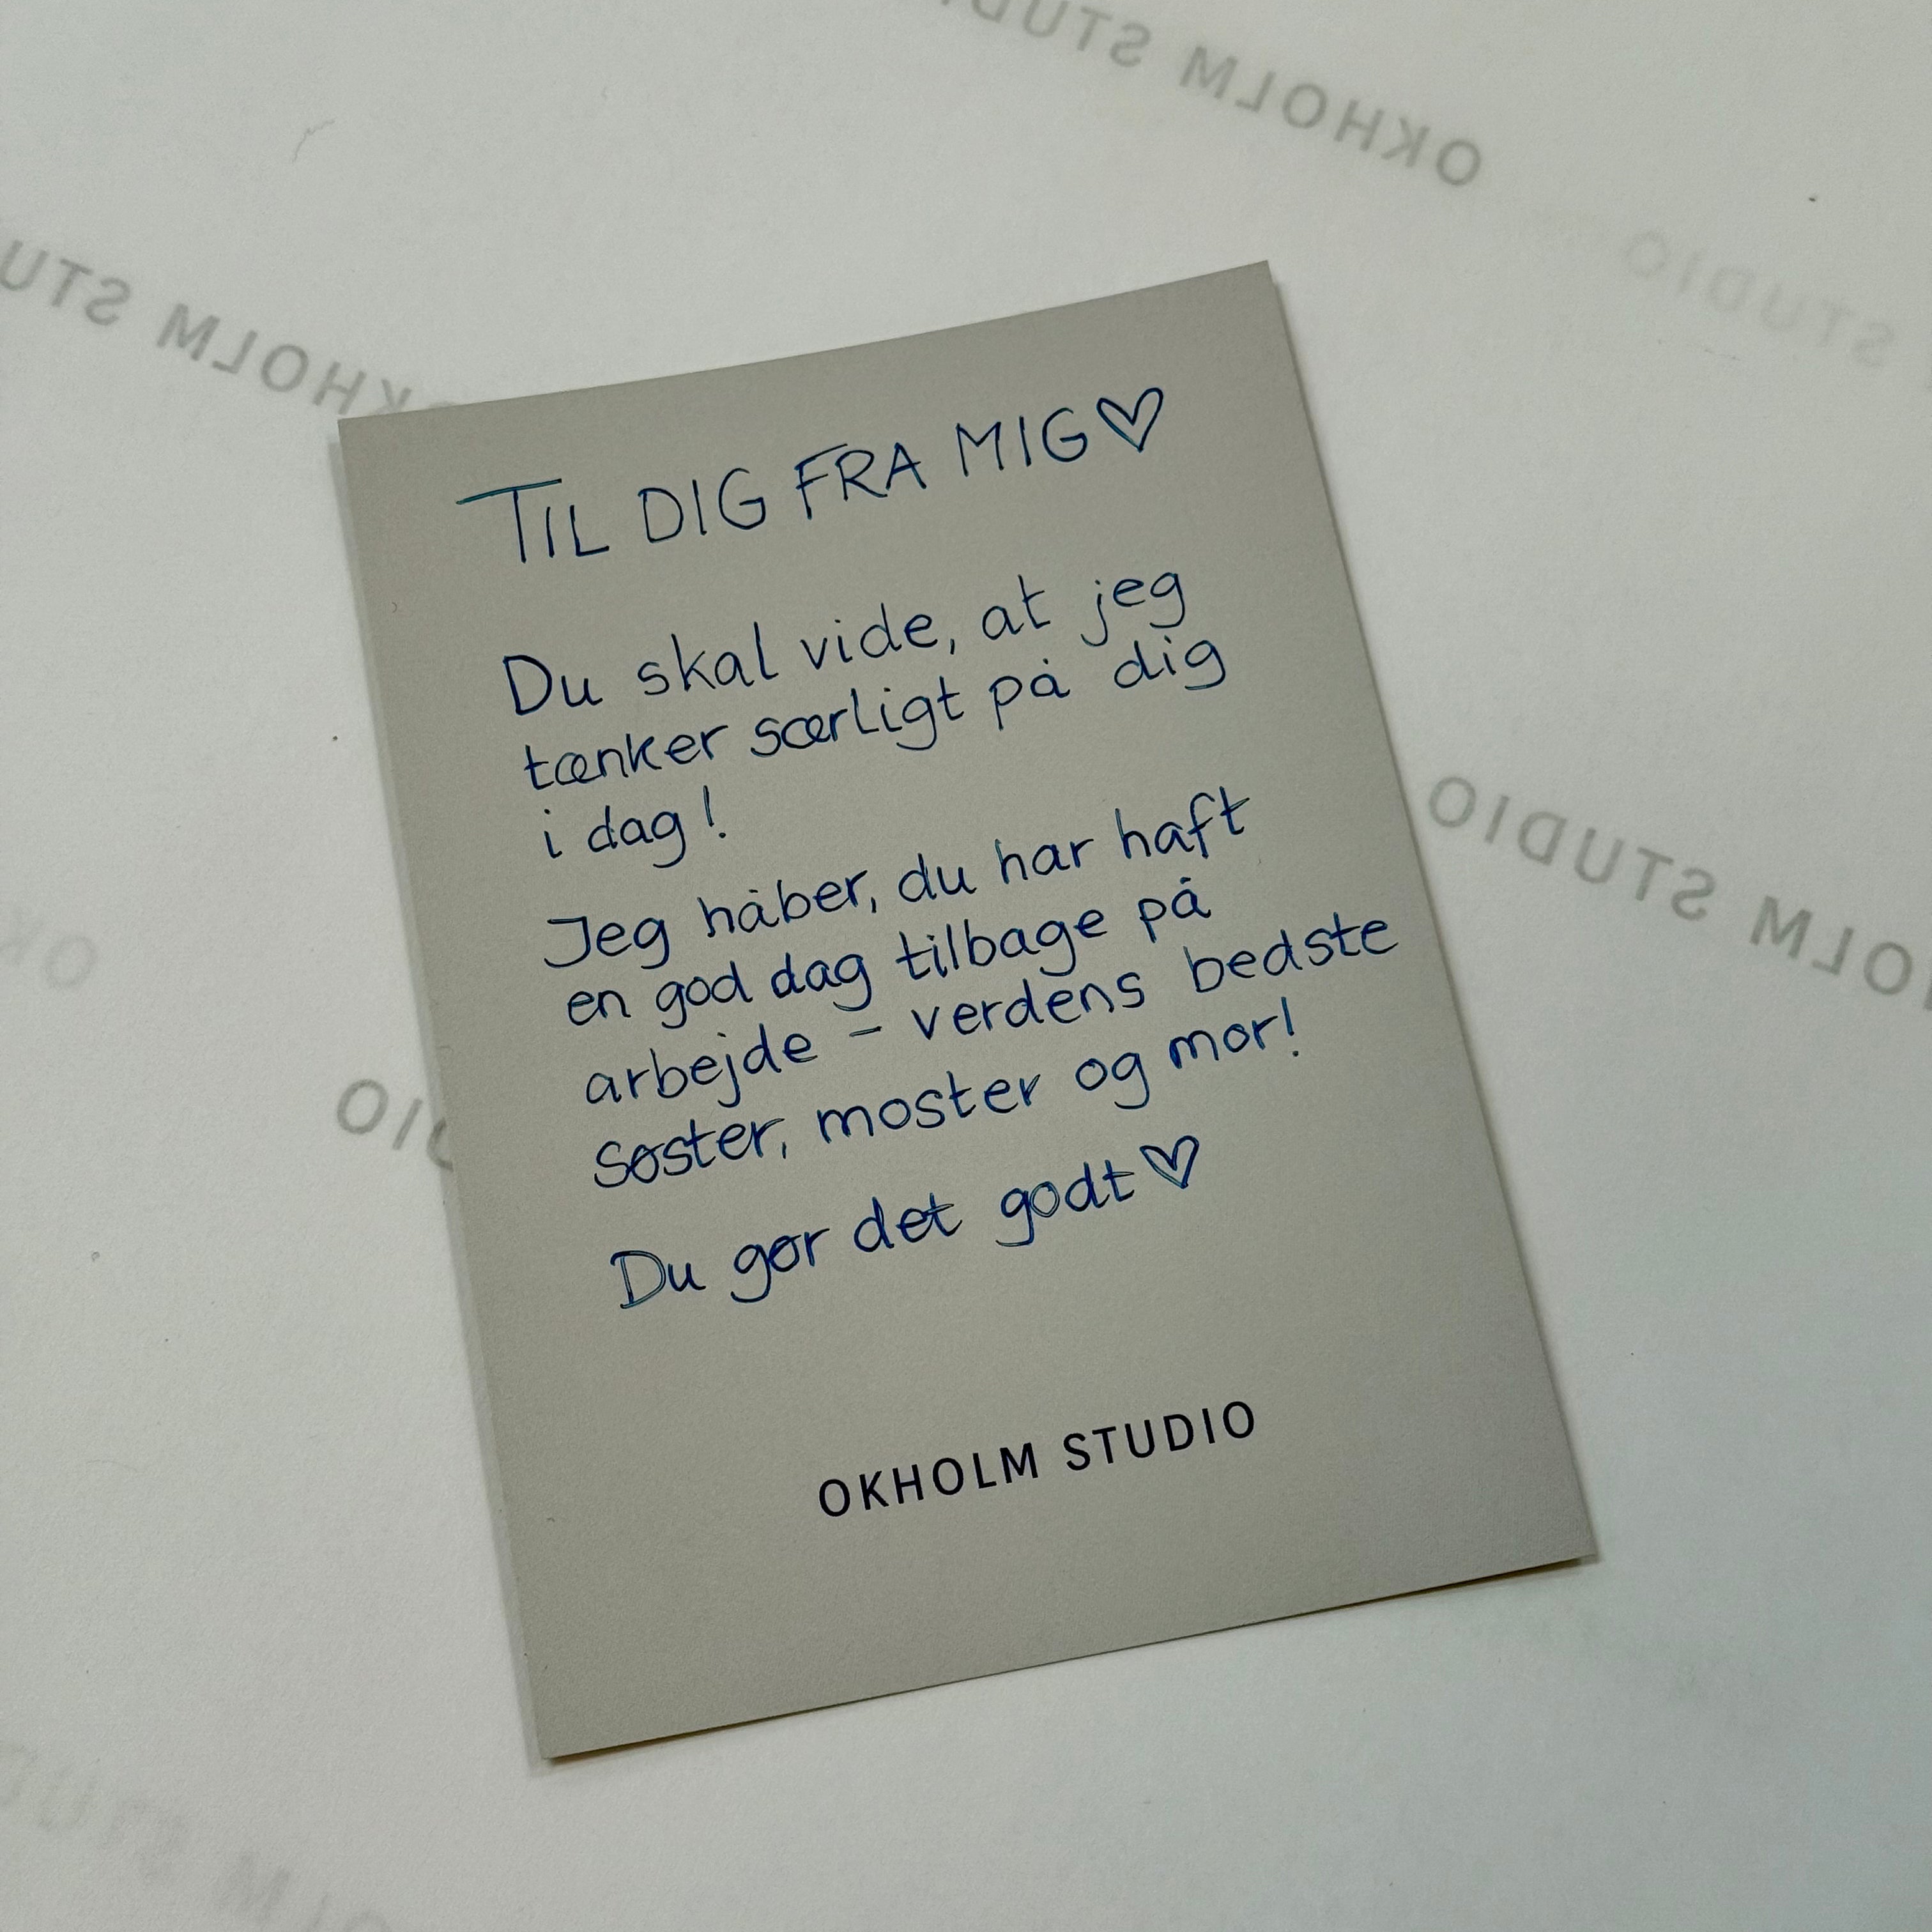 OKHOLM STUDIO
STUDIO
OKHOLM STU
TIL DIG FRA MIG♡
Du skal vide, at jeg
tænker særligt på dig
i dag!
Jeg håber, du har haft
en god dag tilbage på
arbejde - verdens bedste
søster, moster og mor!
Du gør det godt♡
OKHOLM STUDIO
OLM STUDIO